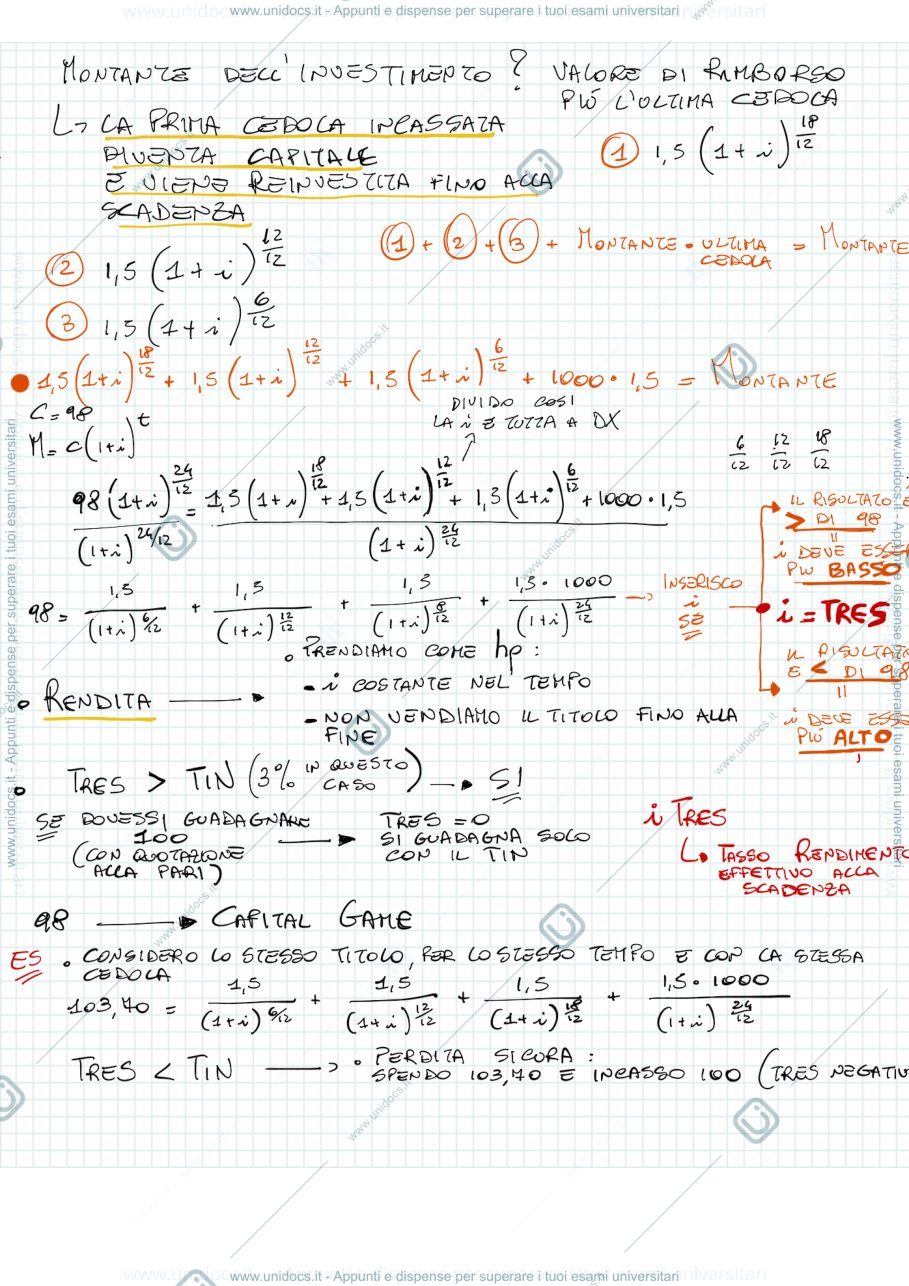 www.unidocs.it - Appunti e dispense per superare i tuoi esami universitari
MONTANTE DELL'INVESTIMENTO? VALORE DI RIMBORSO
PIÚ L'ULTIMA CEDOLA
↳ LA PRIMA CEDOLA INCASSATA
DIVENTA CAPITALE
E VIENE REINVESTITA FINO ALLA
SCADENZA
① 1,5 (1+i)^(18/12)
② 1,5 (1+i)^(12/12)
① + ② + ③ + MONTANTE • ULTIMA CEDOLA = MONTANTE
③ 1,5 (1+i)^(6/12)
• 1,5(1+i)^(18/12) + 1,5(1+i)^(12/12) + 1,5(1+i)^(6/12) + 1000 • 1,5 = MONTANTE
C = 98
M = C(1+i)^t
DIVIDO COSÌ
LA i E TUTTA A DX
6/12 12/12 18/12
98(1+i)^(24/12) / (1+i)^(24/12) = 1,5(1+i)^(18/12) + 1,5(1+i)^(12/12) + 1,5(1+i)^(6/12) + 1000 • 1,5 / (1+i)^(24/12)
98 = 1,5/(1+i)^(6/12) + 1,5/(1+i)^(12/12) + 1,5/(1+i)^(8/12) + 1,5 • 1000/(1+i)^(24/12) → INSERISCO
i
SE
IL RISULTATO E
> DI 98
=
i DEVE ESSE
PIÚ BASSO
i = TRES
IL RISULTATO
E < DI 98
=
i DEVE ESSE
PIÚ ALTO
• PRENDIAMO COME hp :
• RENDITA → - i COSTANTE NEL TEMPO
- NON VENDIAMO IL TITOLO FINO ALLA
FINE
• TRES > TIN (3% IN QUESTO CASO) → SI
SE DOVESSI GUADAGNARE
100
(CON QUOTAZIONE
ALLA PARI)
→ TRES = 0
SI GUADAGNA SOLO
CON IL TIN
i TRES
↳ TASSO RENDIMENTO
EFFETTIVO ALLA
SCADENZA
98 → CAPITAL GAME
ES • CONSIDERO LO STESSO TITOLO, PER LO STESSO TEMPO E CON LA STESSA
CEDOLA
103,70 = 1,5/(1+i)^(6/12) + 1,5/(1+i)^(12/12) + 1,5/(1+i)^(18/12) + 1,5 • 1000/(1+i)^(24/12)
TRES < TIN → • PERDITA SICURA :
SPENDO 103,70 E INCASSO 100 (TRES NEGATIV
www.unidocs.it - Appunti e dispense per superare i tuoi esami universitari